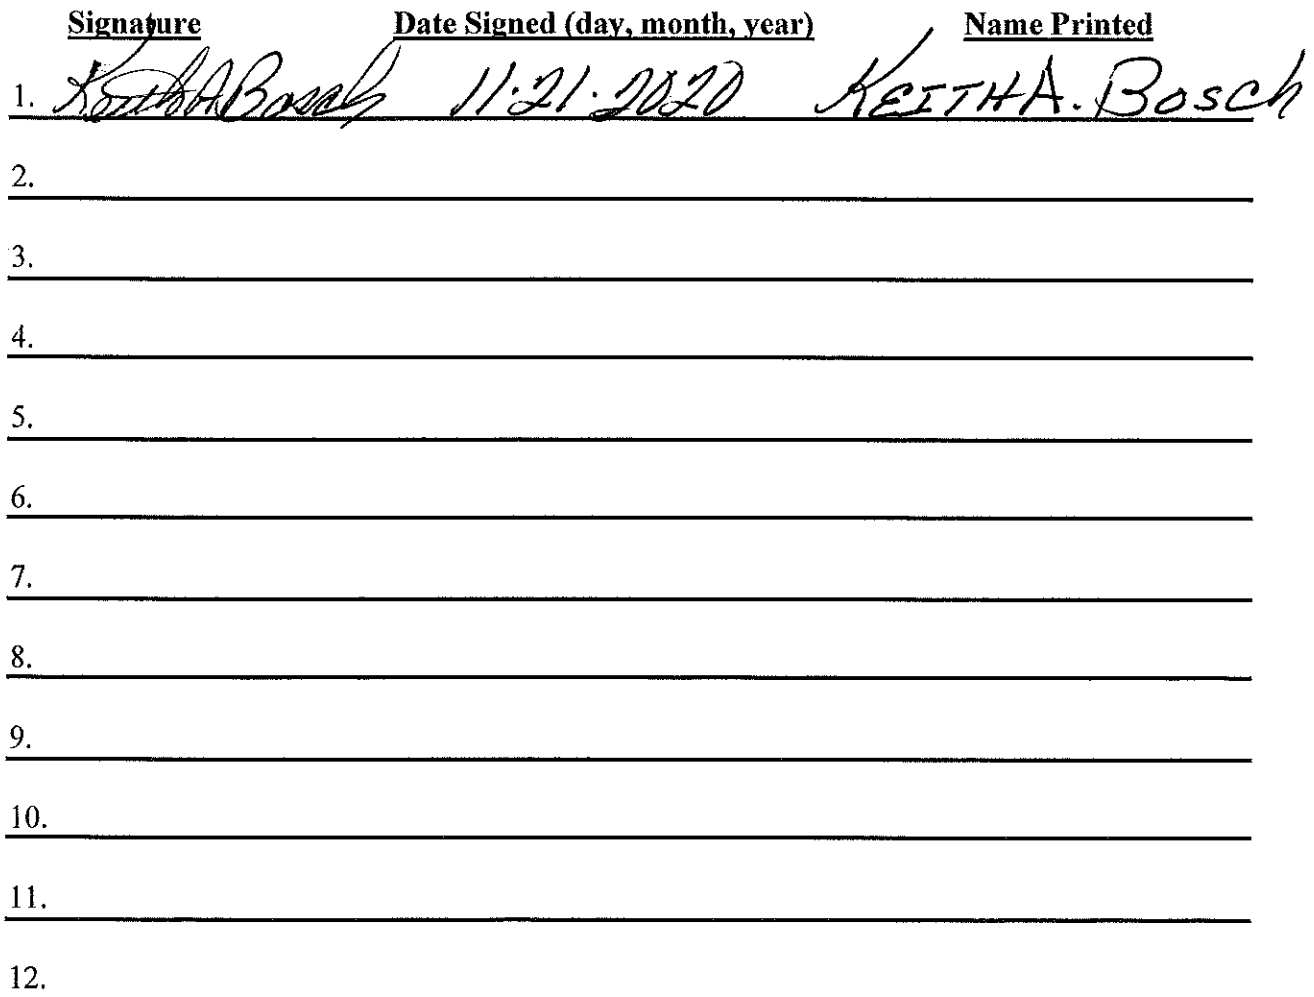 Signature Date Signed (day, month, year) Name Printed
1. Keith A Bosch 11.21.2020 KEITH A. Bosch
2.
3.
4.
5.
6.
7.
8.
9.
10.
11.
12.